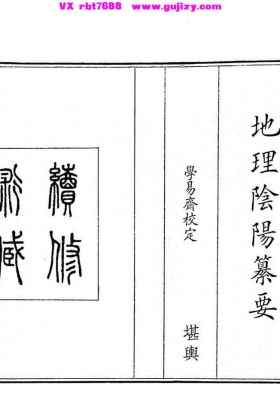 VX rbt7688 www.gujizy.com
地理陰陽纂要
學易齋校定
堪輿
續修